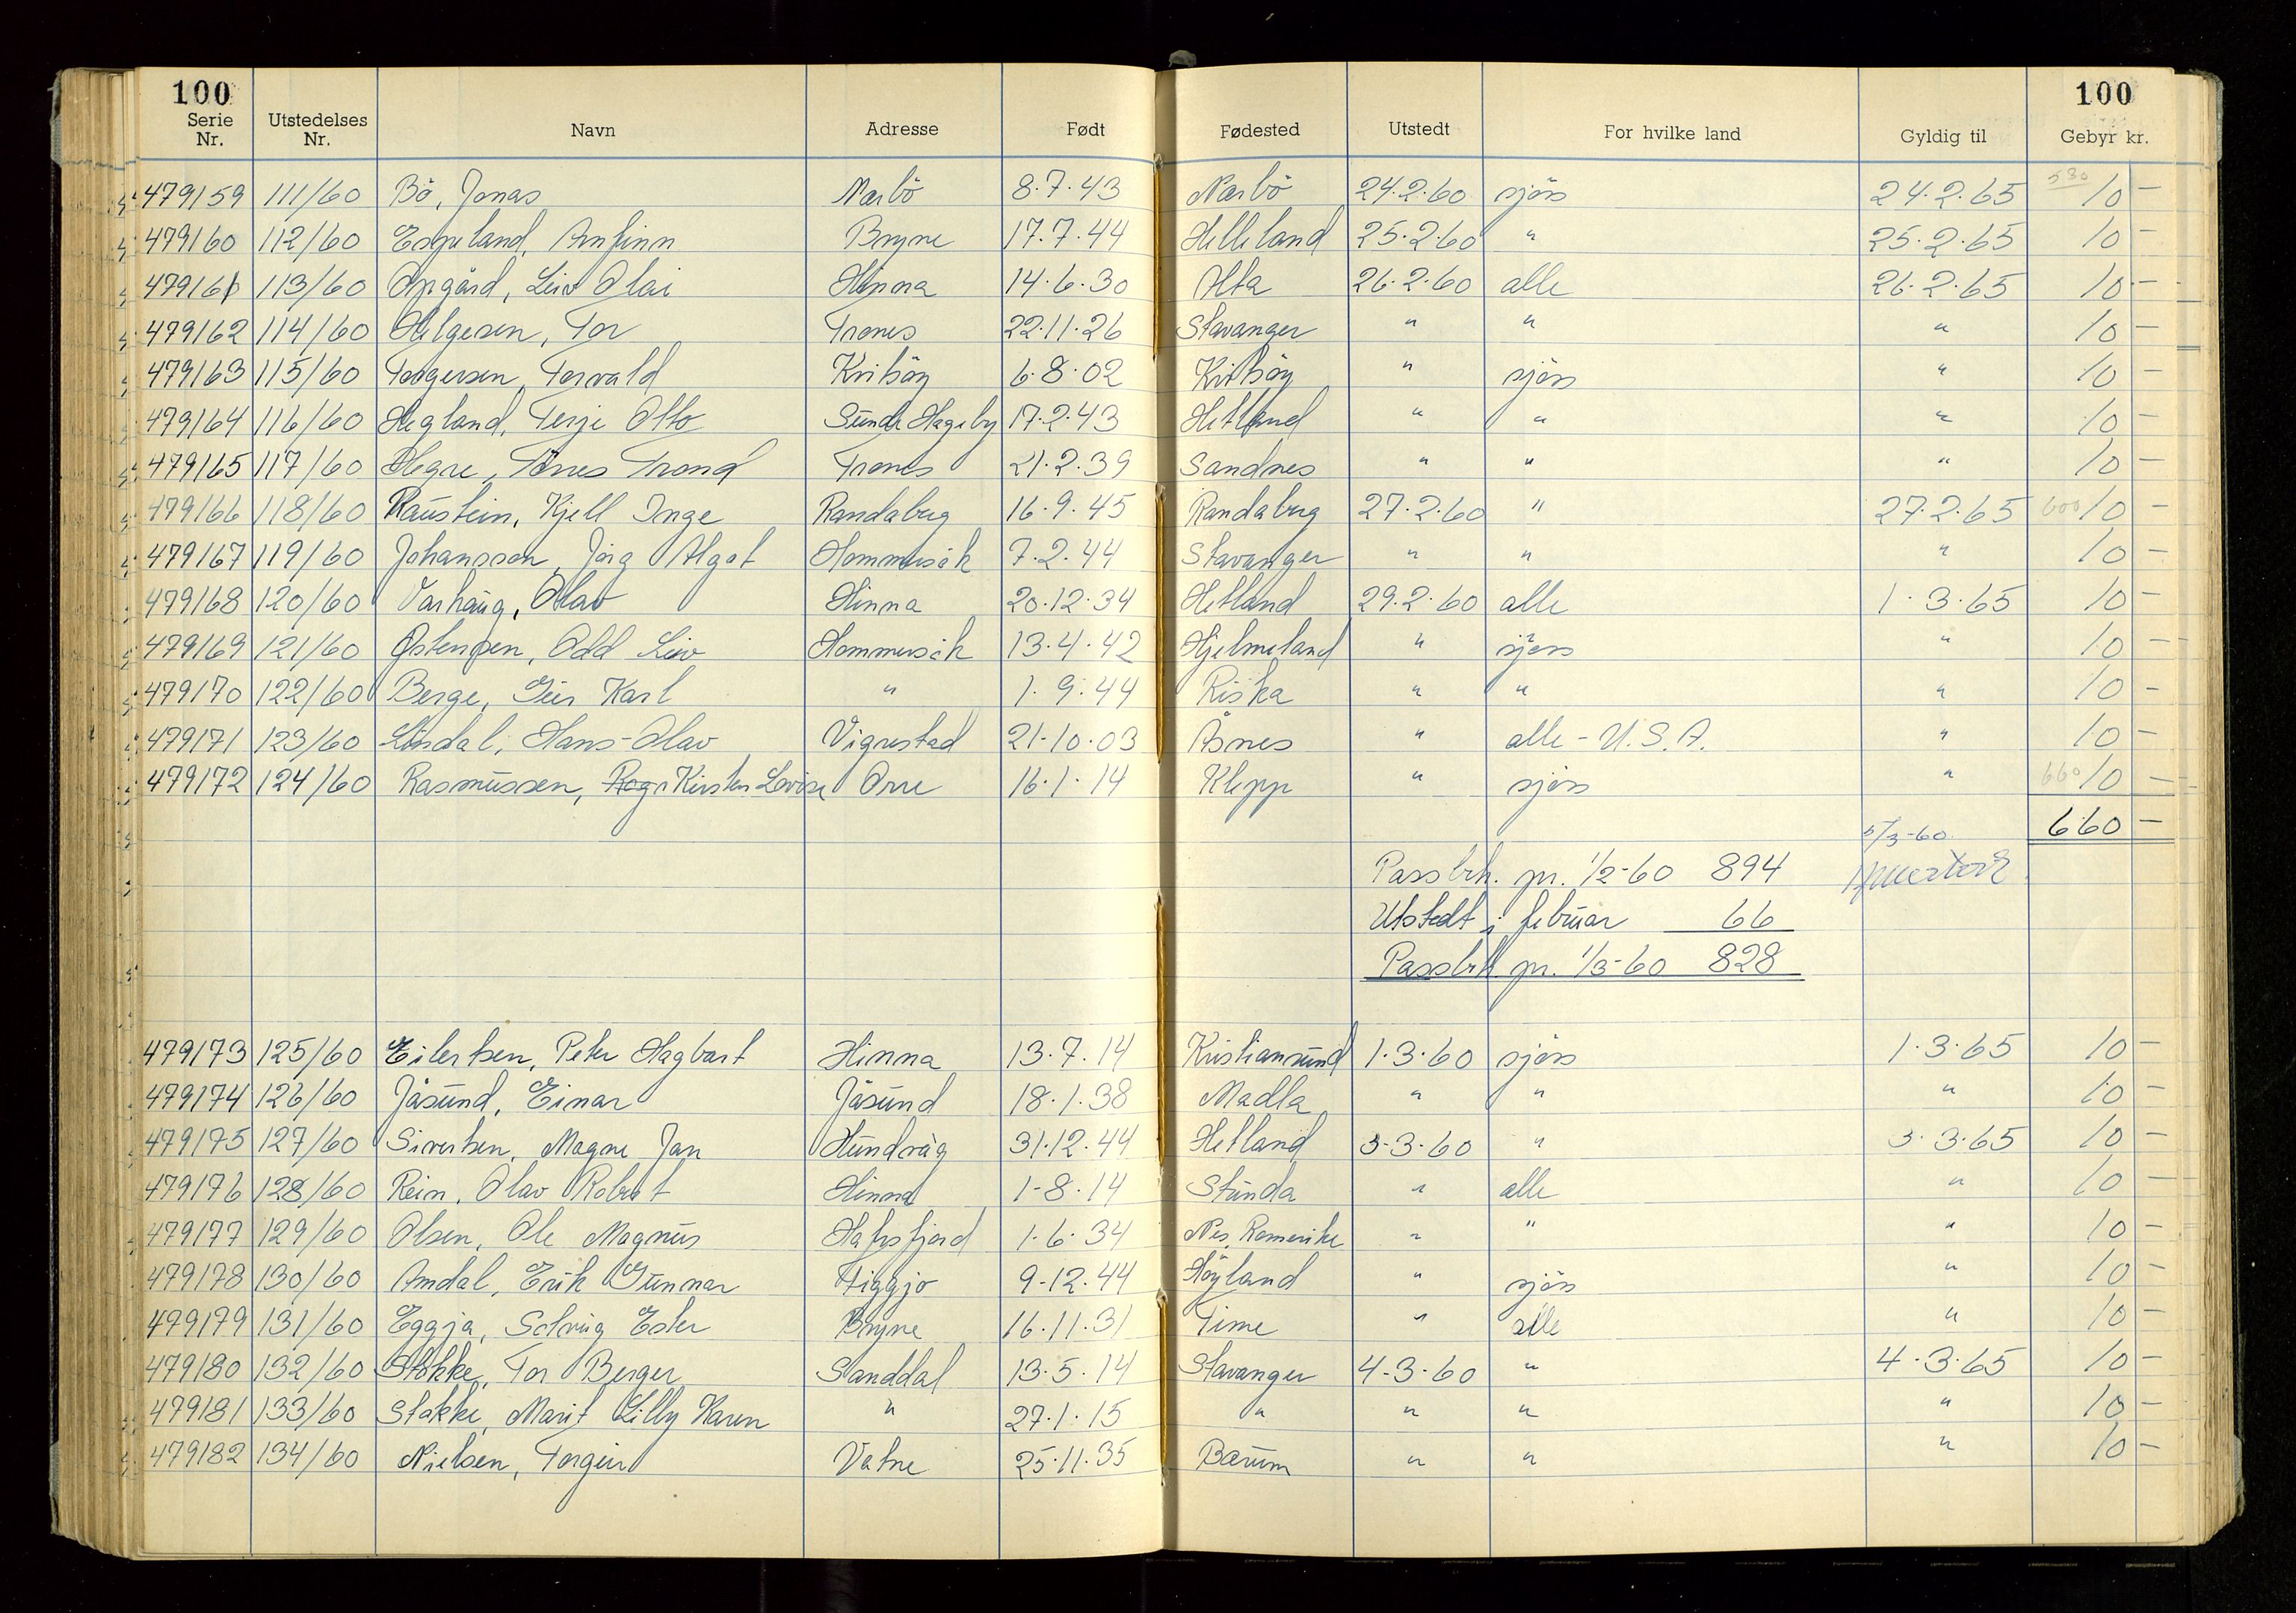 100 100
Serie Nr. Utstedelses Nr. Navn Adresse Født Fødested Utstedt For hvilke land Gyldig til Gebyr kr.
479159 111/60 Bö, Jonas Nærbö 8.7.43 Nærbö 24.2.60 sjös 24.2.65 580 10 -
479160 112/60 Espeland, Arnfinn Bryne 17.7.44 Helleland 25.2.60 " 25.2.65 10 -
479161 113/60 Opgård, Leiv Olai Hinna 14.6.30 Alta 26.2.60 alle 26.2.65 10 -
479162 114/60 Helgesen, Tor Trones 22.11.26 Stavanger " " " 10 -
479163 115/60 Torgersen, Torvald Kvitsöy 6.8.02 Kvitsöy " sjös " 10 -
479164 116/60 Hegland, Terje Otto Sunde Hageby 17.2.43 Hetland " " " 10 -
479165 117/60 Hegre, Tönes Trond Trones 21.2.39 Sandnes " " " 10 -
479166 118/60 Haustein, Kjell Inge Randaberg 16.9.45 Randaberg 27.2.60 " 27.2.65 600 10 -
479167 119/60 Johansson, Jörg Algot Hommersåk 7.2.44 Stavanger " " " 10 -
479168 120/60 Varhaug, Olav Hinna 20.12.34 Hetland 29.2.60 alle 1.3.65 10 -
479169 121/60 Østensen, Odd Leiv Hommersåk 13.4.42 Hjelmeland " sjøss " 10 -
479170 122/60 Berge, Geir Karl " 1.9.44 Riska " " " 10 -
479171 123/60 Lindal, Hans-Olav Vigrestad 21-10-03 Åsnes " alle - U.S.A. " 10 -
479172 124/60 Rasmussen, Rag Kirsten Lovise Orre 16.1.14 Klepp " sjös " 660 10 -
5/3-60 660 -
Passbeh. pr. 1/2-60 894
Utstedt i februar 66
Passbeh. pr. 1/3-60 828
479173 125/60 Eilertsen, Peter Hagbart Hinna 13.7.14 Kristiansund 1.3.60 sjös 1.3.65 10 -
479174 126/60 Jåsund, Einar Jåsund 18.1.38 Madla " " " 10 -
479175 127/60 Sivertsen, Magne Jan Hundvåg 31.12.44 Hetland 3-3-60 " 3.3.65 10 -
479176 128/60 Rein, Olav Robert Hinna 1-8.14 Stunda " alle " 10 -
479177 129/60 Olsen, Ole Magnus Hafrsfjord 1.6.34 Nes, Romerike " " " 10 -
479178 130/60 Amdal, Erik Gunnar Figgjo 9-12.44 Höyland " sjös " 10 -
479179 131/60 Eggja, Solveig Ester Bryne 16.11.31 Time " alle " 10 -
479180 132/60 Stokke, Tor Berger Sanddal 13.5.14 Stavanger 4-3-60 " 4.3.65 10 -
479181 133/60 Stokke, Marit Lilly Karen " 27.1.15 " " " " 10 -
479182 134/60 Nielsen, Torgeir Vatne 25.11.35 Bærum " " " 10 -